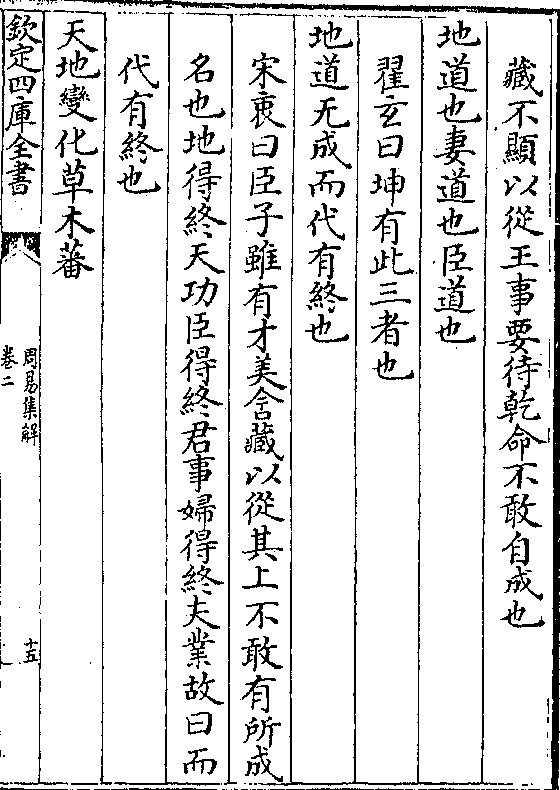 藏不顯以從王事要待乾命不敢自成也
地道也妻道也臣道也
翟玄曰坤有此三者也
地道无成而代有終也
宋衷曰臣子雖有才美含藏以從其上不敢有所成
名也地得終天功臣得終君事婦得終夫業故曰而
代有終也
天地變化草木蕃
欽定四庫全書
周易集解
卷二
十五